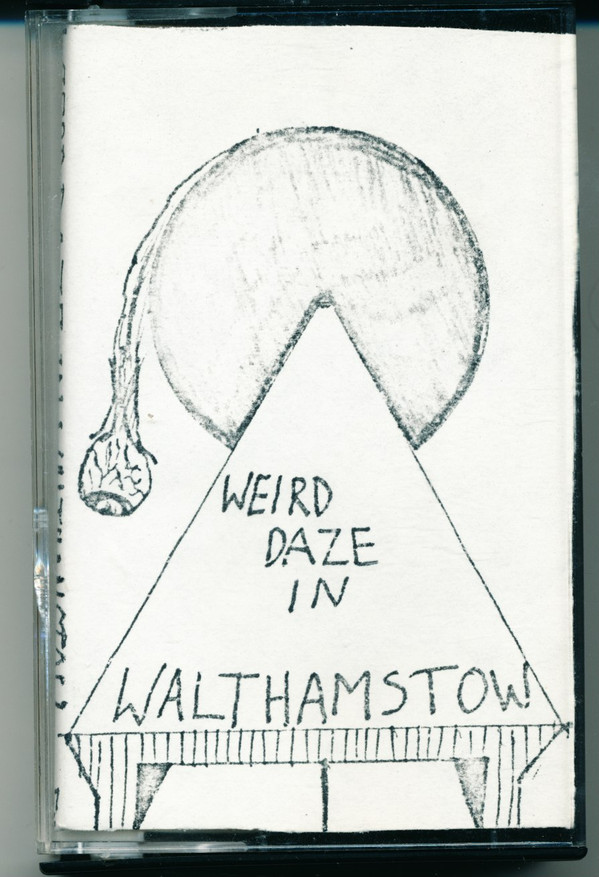 WEIRD
DAZE
IN
WALTHAMSTOW